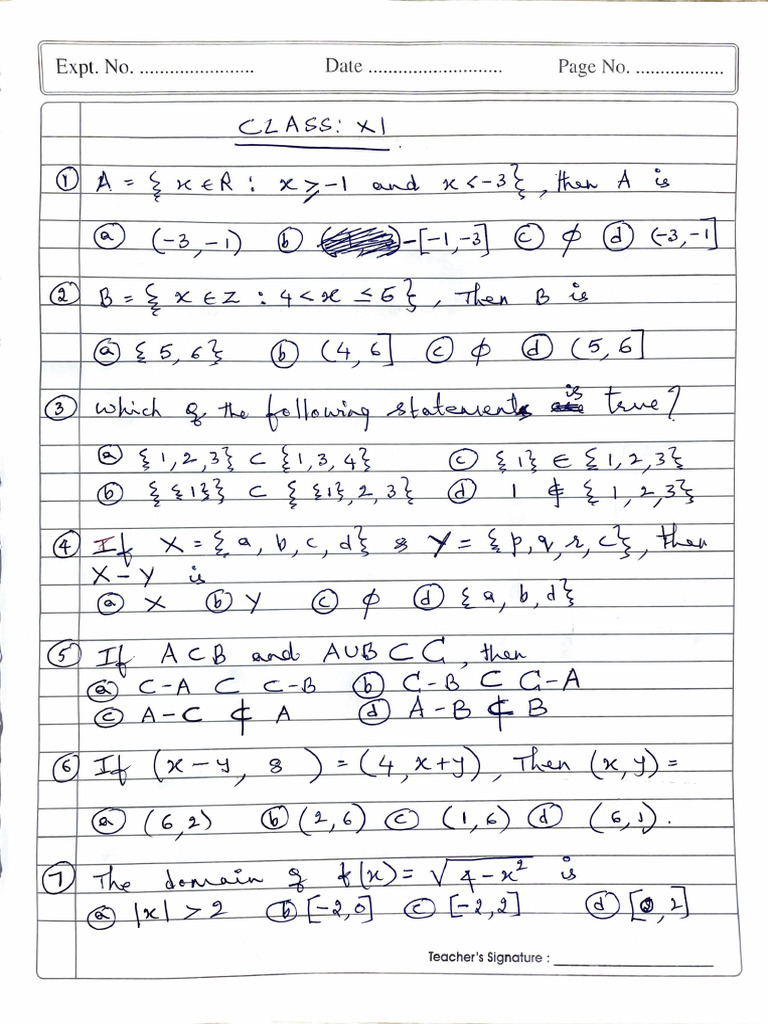 Expt. No. ...................... Date .......................... Page No. .................
CLASS: XI
① A = { x ∈ R : x ≥ -1 and x < -3}, then A is
ⓐ (-3, -1) ⓑ -[-1, -3] ⓒ ϕ ⓓ (-3, -1]
② B = { x ∈ Z : 4 < x ≤ 6}, Then B is
ⓐ {5, 6} ⓑ (4, 6] ⓒ ϕ ⓓ (5, 6]
③ Which of the following statements is true?
ⓐ {1, 2, 3} ⊂ {1, 3, 4} ⓒ {1} ∈ {1, 2, 3}
ⓑ {{1}} ⊂ {{1}, 2, 3} ⓓ 1 ∉ {1, 2, 3}
④ If X = {a, b, c, d} & Y = {p, q, r, c}, then
X - Y is
ⓐ X ⓑ Y ⓒ ϕ ⓓ {a, b, d}
⑤ If A ⊂ B and A ∪ B ⊂ C, then
ⓐ C - A ⊂ C - B ⓑ C - B ⊂ C - A
ⓒ A - C ⊄ A ⓓ A - B ⊄ B
⑥ If (x - y, 8 ) = (4, x + y), Then (x, y) =
ⓐ (6, 2) ⓑ (2, 6) ⓒ (1, 6) ⓓ (6, 1).
⑦ The domain of f(x) = √4 - x² is
ⓐ |x| > 2 ⓑ [-2, 0] ⓒ [-2, 2] ⓓ [0, 2]
Teacher's Signature : ____________________